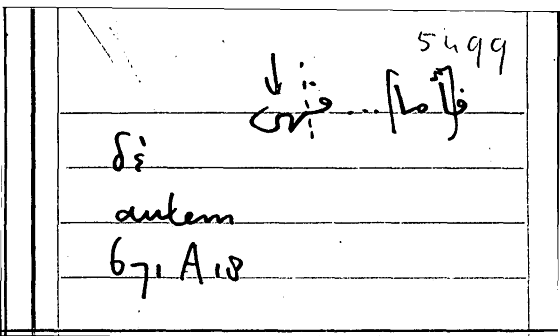 5499
ف[أما] ...
δὲ
autem
671 A 18